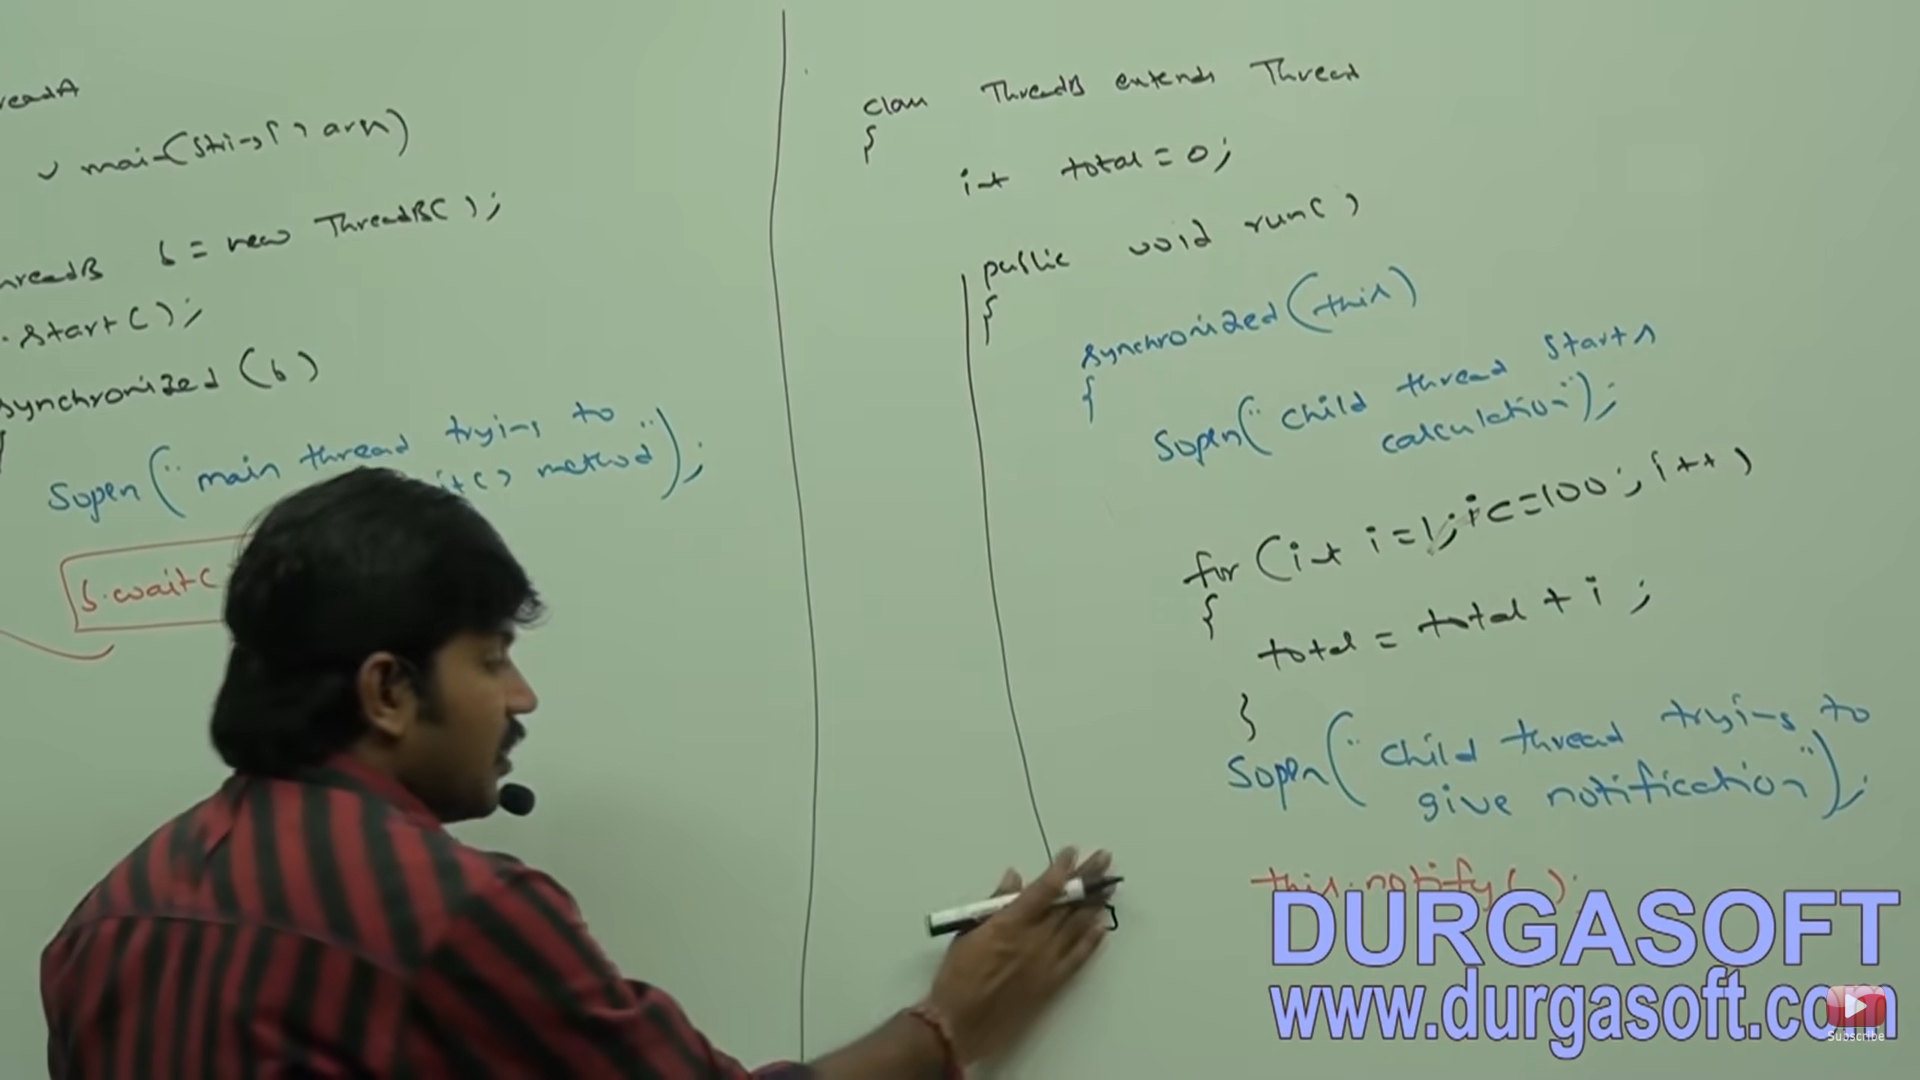 readA
main(String[] args)
hreadB b = new ThreadB();
.start();
synchronized (b)
{
Sopln("main thread trying to
it() method");
b.wait(
class ThreadB extends Thread
{
int total = 0;
public void run()
{
synchronized(this)
{
Sopln("child thread starts
calculation");
for (int i=1; i<=100; i++)
{
total = total + i;
}
Sopln("child thread trying to
give notification");
this.notify();
}
DURGASOFT
www.durgasoft.com
Subscribe